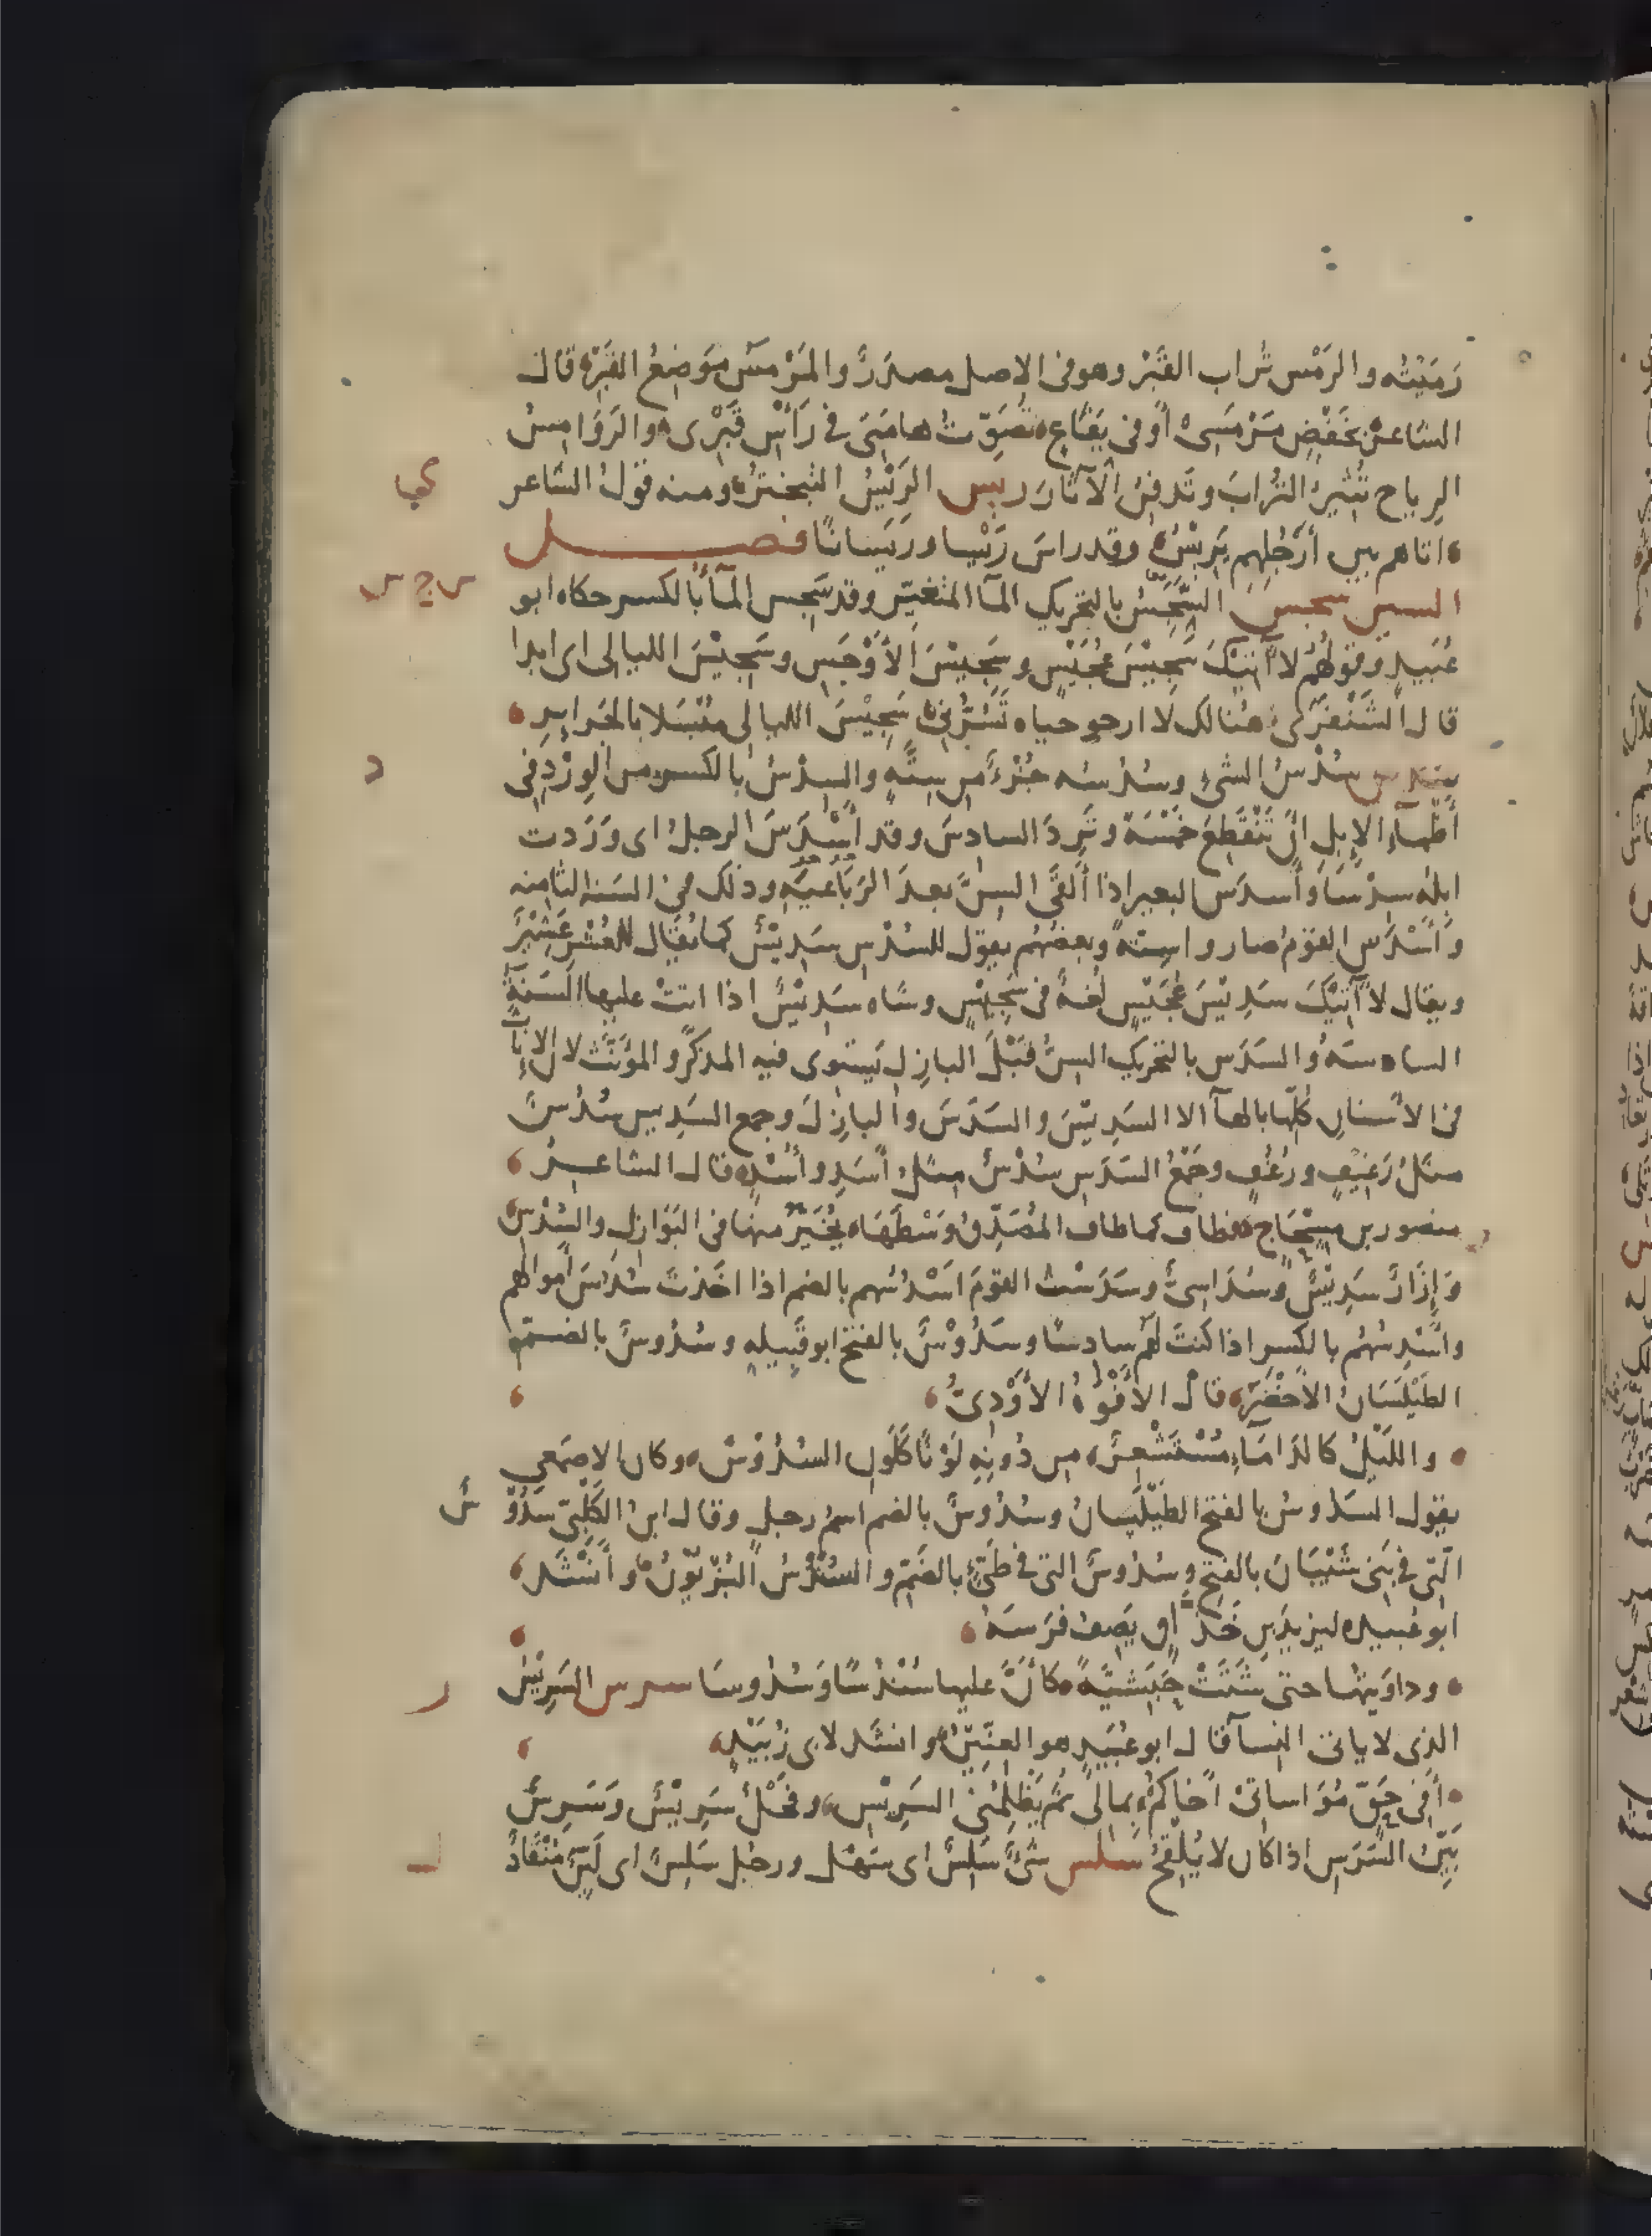 رَمَيْتُه والرَمْس تُراب القَبْر وهو في الاصل مصدرٌ والمَرْمَس مَوضِعُ القَبْر قال
الشاعر بخَفْضِ مَرْمَسِي أوْ في يَفَاعٍ تُصَوّتُ هامَتي في رَأسِ قَبْري والرَوَامِسُ
الرِياح تُثير التُرابَ وتَدفِن الآثار ريس الرَيْسُ التَبختر ومنه قول الشاعر
اتاهم بين أرْحُلِهم يَرِيْسُ وقد راسَ رَيْسا ورَيَسانًا فصل
السين سجس السَّجَسُ بالتحريك المآ المتغيّر وقد سَجِس المآءُ بالكسر حكاه ابو
عُبَيد وقولهُم لا آتِيْكَ سَجِيْسَ عُجَيْسٍ وسَجِيْسَ الأوْجَسِ وسَجِيْسَ الليالي اي ابدا
قال الشَنْفَرَى هنالك لا ارجو حياه تَسُرُّني سَجِيْسَ الليالي مُبْسَلا بالجَرايرِ
سدس سُدْسُ الشيء وسُدُسُه جُزْءٌ من سِتَّةٍ والسِدْسُ بالكسر من الوِرْدِ في
أظْمآءِ الإبِلِ انْ تَنْقَطِعَ خَمْسَة وتَرِدَ السادسَ وقد أَسْدَسَ الرجلُ اي وَرَدت
ابلُه سِدْسًا وأسدَس البعير اذا ألقَى السِنَّ بعدَ الرَبَاعِيَه وذلك في السَنه الثامنه
وأسْدَس القومُ صاروا سِتةً وبعضهُم يقول للسُدْسِ سَدِيْسٌ كما يُقال للعُشْرِ عَشِيْرٌ
ويقال لا آتِيْكَ سَدِيْسَ عُجَيْسٍ لُغةٌ في سَجِيْسٍ وشاه سَدِيْسٌ اذا اتتْ عليها السَنةُ
السادسَهُ والسَدَس بالتحريك السِنُّ قَبْلَ البازِل يَستوى فيه المذكرُ والمؤنَّث لان الإناثَ
في الاسْنانِ كُلّها بالهآ الا السَدِيْسَ والسَدَسَ والبازِلَ وجمع السَدِيس سُدُسٌ
مثلُ رَغِيْفٍ ورُغُفٍ وجَمْعُ السَدَسِ سُدْسٌ مثلُ أسَدٍ وأُسْدٍ قال الشاعر
منصور بن مِسْجَاح فطاف كما طاف المُصَدِّقُ وَسْطَهَا يُخَيَّرُ منها في البَوَازِلِ والسُدْسِ
وإزارٌ سَدِيْسٌ وسُدَاسِيٌّ وسَدَسْتُ القومَ اسْدُسُهم بالضم اذا اخَذتَ سُدْسَ أموالهم
واسْدِسُهُم بالكسر اذا كنتَ لهم سادِسًا وسَدُوْسٌ بالفتح ابو قبيله وسُدُوسٌ بالضم هو
الطَيْلَسَان الأخْضَر قال الأفْوَهُ الأوْدِيُّ
والليْلُ كالدَامَاءِ مُسْتَشْعِرٌ من دُونِهِ لَوْنًا كَلَونِ السُدُوْسْ وكان الاصمَعي
يقول السَدُوسُ بالفتح الطَيْلَسان وسُدُوسٌ بالضم اسمُ رجل وقال ابن الكَلْبِيّ سَدُوْ سٌ
الّتي في بَني شَيْبَانَ بالفتحِ وسُدُوسٌ التي في طَيٍّ بالضَمّ والسُنْدُسُ البُزْيُوْنُ وأنْشَدَ
ابو عُبيده ليزيدَبنِ خَذَّاقٍ يَصِفُ فرَسَهُ
وداوَيتُها حتى شَتَتْ حَبَشِيَّةً كأنَّ عليها سُنْدُسًا وسُدُوسَا سرس السَرِيْسُ
الذي لا ياتي النسآ قال ابو عُبَيد هو العِنِّيْنُ وانشد لابي زُبَيْدٍ
أفي حَقٍّ مُوَاساتي أخاكُمْ بمالي ثُمَّ يَظْلِمُني السَرِيْسُ وفَحْلٌ سَرِيْسٌ وسَرِسٌ
بَيِّنُ السَرَسِ اذا كان لا يُلْقِحُ سلس شيءٌ سَلِسٌ اي سَهْل ورجُل سَلِسٌ اي لَيِّنٌ مُنْقَادٌ